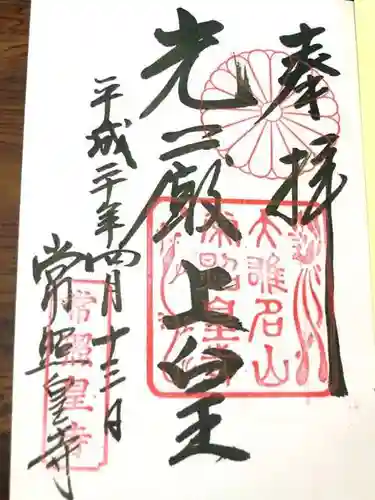 奉拝
光厳上皇
平成二十年四月十三日
常照皇寺
大雄名山
常照皇寺
常照皇寺